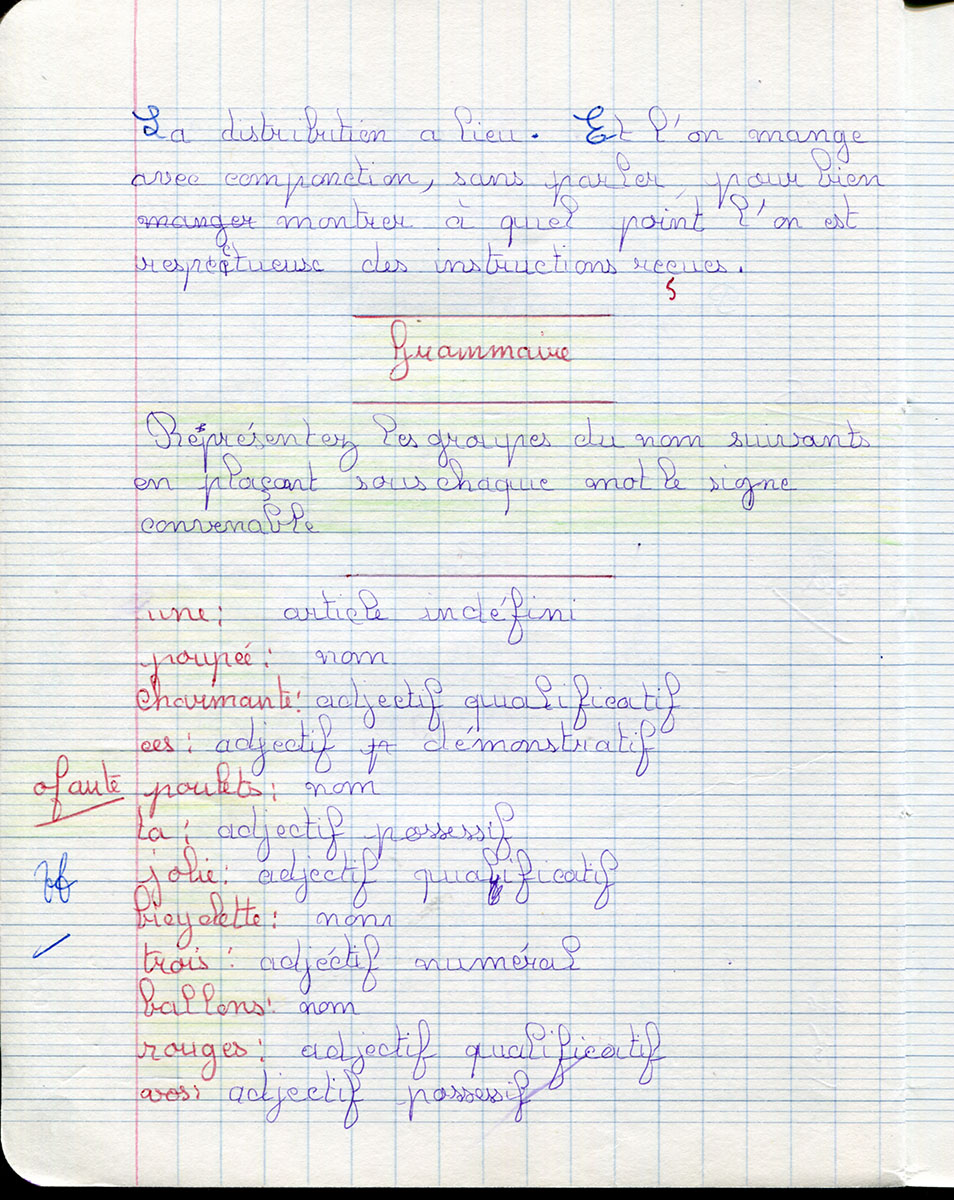 La distribution a lieu. Et l'on mange
avec componction, sans parler, pour bien
manger montrer à quel point l'on est
respectueuse des instructions reçues.
Grammaire
Représentez les groupes du nom suivants
en plaçant sous chaque mot le signe
convenable
une: article indéfini
poupée: nom
charmante: adjectif qualificatif
ces: adjectif démonstratif
0 faute poulets: nom
ta: adjectif possessif
jolie: adjectif qualificatif
bicyclette: nom
trois: adjectif numéral
ballons: nom
rouges: adjectif qualificatif
vos: adjectif possessif